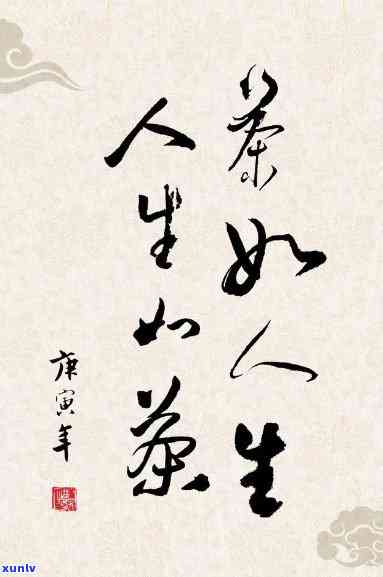 茶如人生
人生如茶
庚寅年
xunlv